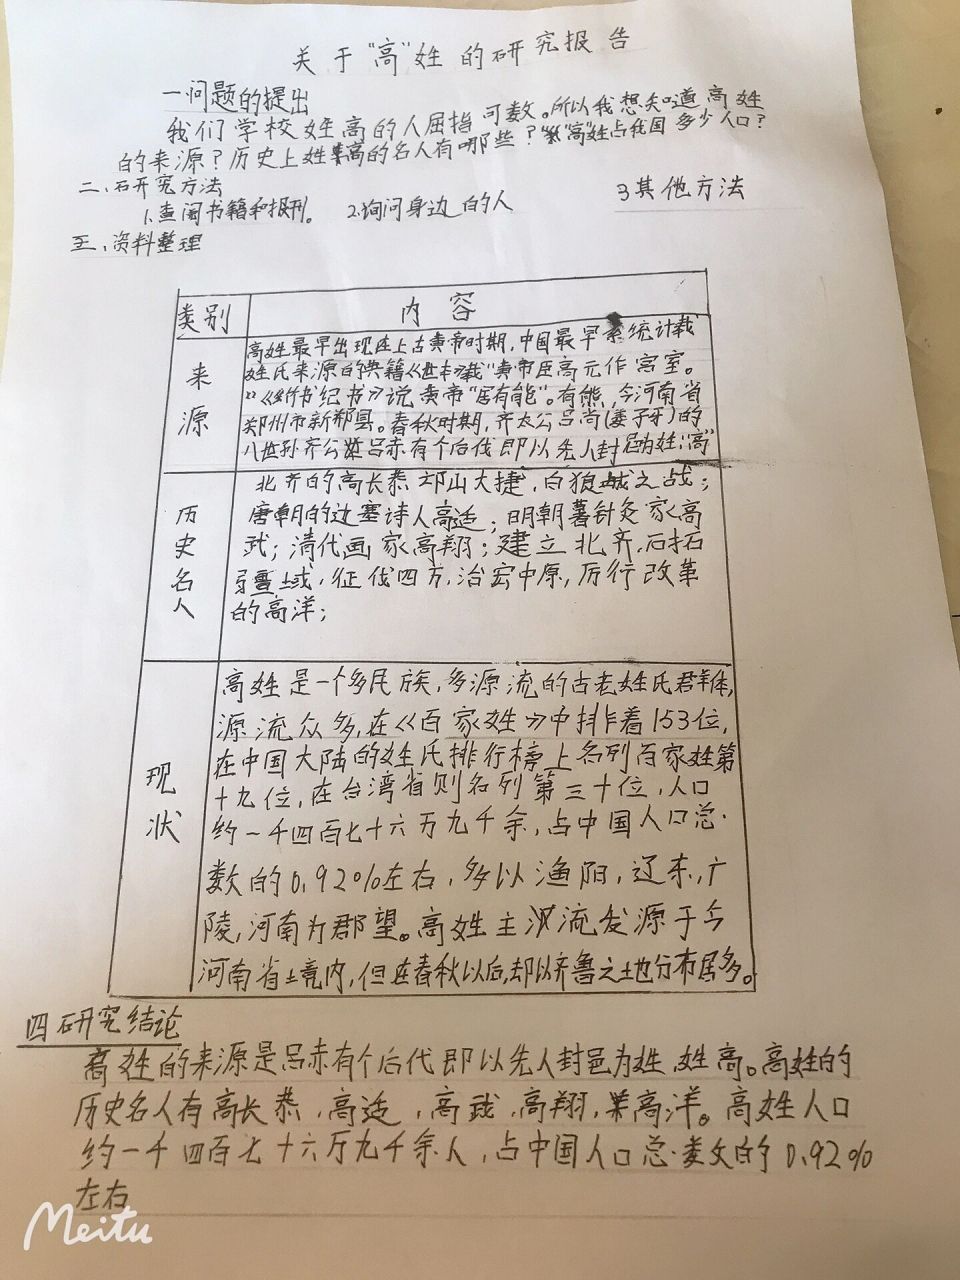 关于"高"姓的研究报告
一问题的提出
我们学校姓高的人屈指可数。所以我想知道高姓
的来源？历史上姓高的名人有哪些？"高"姓占我国多少人口？
二、研究方法
1、查阅书籍和报刊。 2、询问身边的人 3其他方法
三、资料整理
类别 内容
来源
高姓最早出现在上古黄帝时期，中国最早系统计载
姓氏来源的典籍《世本》载"黄帝臣高元作宫室。
"《竹书纪书》说黄帝"居有能"。有熊，今河南省
郑州市新郑县。春秋时期，齐太公吕尚(姜子牙)的
八世孙齐公 吕赤有个后代即以先人封邑为姓："高"
历史名人
北齐的高长恭邙山大捷，白狼城之战；
唐朝的边塞诗人高适；明朝著针灸家高
武；清代画家高翔；建立北齐，石拓
疆域，征伐四方，治宏中原，厉行改革
的高洋；
现状
高姓是一个多民族，多源流的古老姓氏群体，
源流众多，在《百家姓》中排着153位，
在中国大陆的姓氏排行榜上名列百家姓第
十九位，在台湾省则名列第三十位，人口
约一千四百七十六万九千余，占中国人口总
数的0.92%左右，多以渔阳，辽东，广
陵，河南为郡望。高姓主 流发源于今
河南省境内，但在春秋以后，却以齐鲁之地分布居多。
四研究结论
高姓的来源是吕赤有个后代即以先人封邑为姓，姓高。高姓的
历史名人有高长恭，高适，高武，高翔，高洋。高姓人口
约一千四百七十六万九千余人，占中国人口总数的0.92%
左右
Meitu